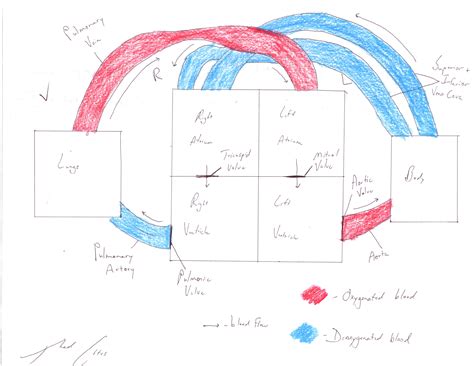 Pulmonary
Vein
R
Superior +
Inferior
Vena Cava
Right
Atrium
Left
Atrium
Lungs
Tricuspid
Valve
Mitral
Valve
Body
Aortic
Valve
Right
Ventricle
Left
Ventricle
Pulmonary
Artery
Pulmonic
Valve
Aorta
- Oxygenated blood
- Blood Flow
- Deoxygenated blood